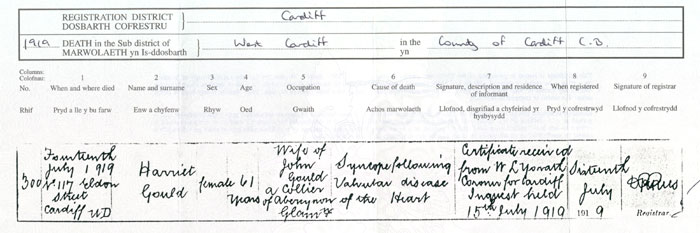 REGISTRATION DISTRICT Cardiff
DOSBARTH COFRESTRU
1919 DEATH in the Sub district of West Cardiff in the County of Cardiff C.B.
MARWOLAETH yn Is-ddosbarth yn
Columns: 1 2 3 4 5 6 7 8 9
Colofnau:
No. When and where died Name and surname Sex Age Occupation Cause of death Signature, description and residence of informant When registered Signature of registrar
Rhif Pryd a lle y bu farw Enw a chyfenw Rhyw Oed Gwaith Achos marwolaeth Llofnod, disgrifiad a chyfeiriad yr hysbysydd Pryd y cofrestrwyd Llofnod y cofrestrydd
300
Fourteenth
July 1919
117 Eldon
Street
Cardiff UD
Harriet
Gould
female
61
years
Wife of
John
Gould
a Collier
of
Glam
Syncope following
Valvular disease
of the Heart
Certificate received
from W L Yorath
Coroner for Cardiff
Inquest held
15th July 1919
Sixteenth
July
1919
Registrar